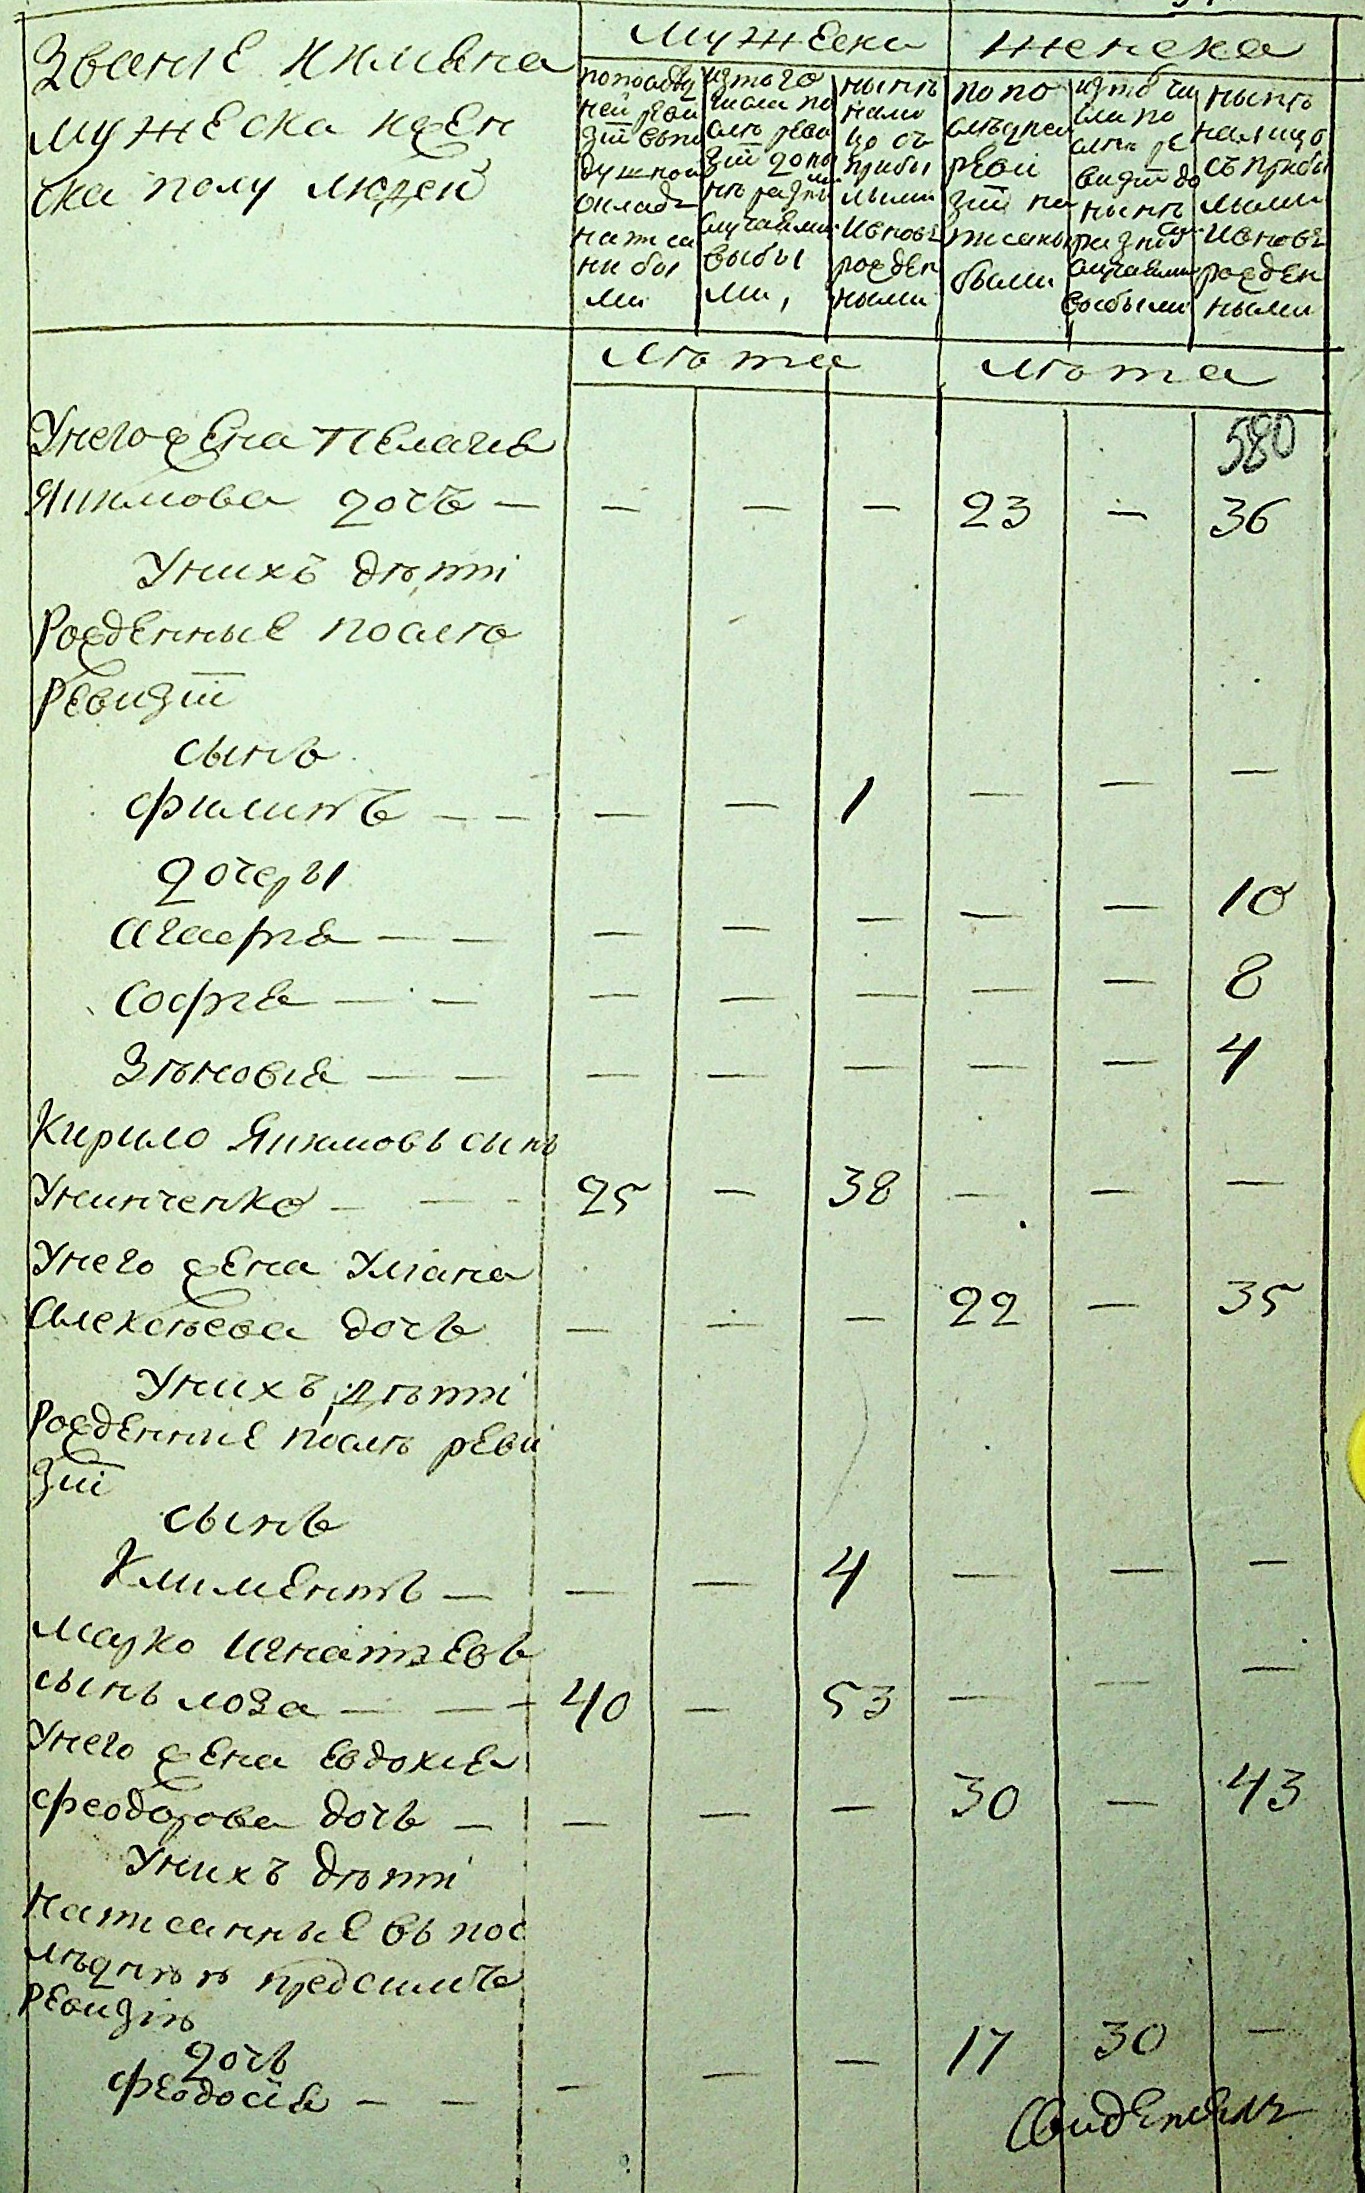 Званіе и имяна
мужеска и жен
ска полу людей
мужеска
женска
по послед
ней реви
зіи въ по
душной
окладъ
написа
ни бы
ли
из того
числа по
слѣ реви
зіи до ны
нѣ разны
ми
случаями
выбы
ли,
нынѣ
нали
цо съ
прибы
лыми
и вновъ
рожден
ными
по по
слѣдней
реви
зіи на
писаны
были
изъ чи
сла по
слѣ ре
визіи до
нынѣ
разны
случаями
выбыли
нынѣ
налицо
съ прибы
лыми
и вновъ
рожден
ными
лѣта лѣта
580
У него жена Пелагея
Якимова дочь — — — — 23 — 36
У нихъ дѣти
рожденные послѣ
ревизіи
сынъ
Филипъ — — — — 1 — — —
дочеры
Агафія — — — — — — — 10
Софія — — — — — — — 8
Зѣновія — — — — — — — 4
Кирило Якимовъ сынъ
Униченко — — — 25 — 38 — — —
У него жена Уліана
Алексѣева дочь — — — 22 — 35
У нихъ дѣти
рожденніе послѣ реви
зіи
сынъ
Климентъ — — — 4 — — —
Марко Игнатіевъ
сынъ Лоза — — — 40 — 53 — — —
У него жена Евдокія
Феодорова дочь — — — — 30 — 43
У нихъ дѣти
написанные въ пос
лѣднѣй предъ симъ
ревизіи
дочь
Феодосія — — — — — 17 30 —
Свидетель